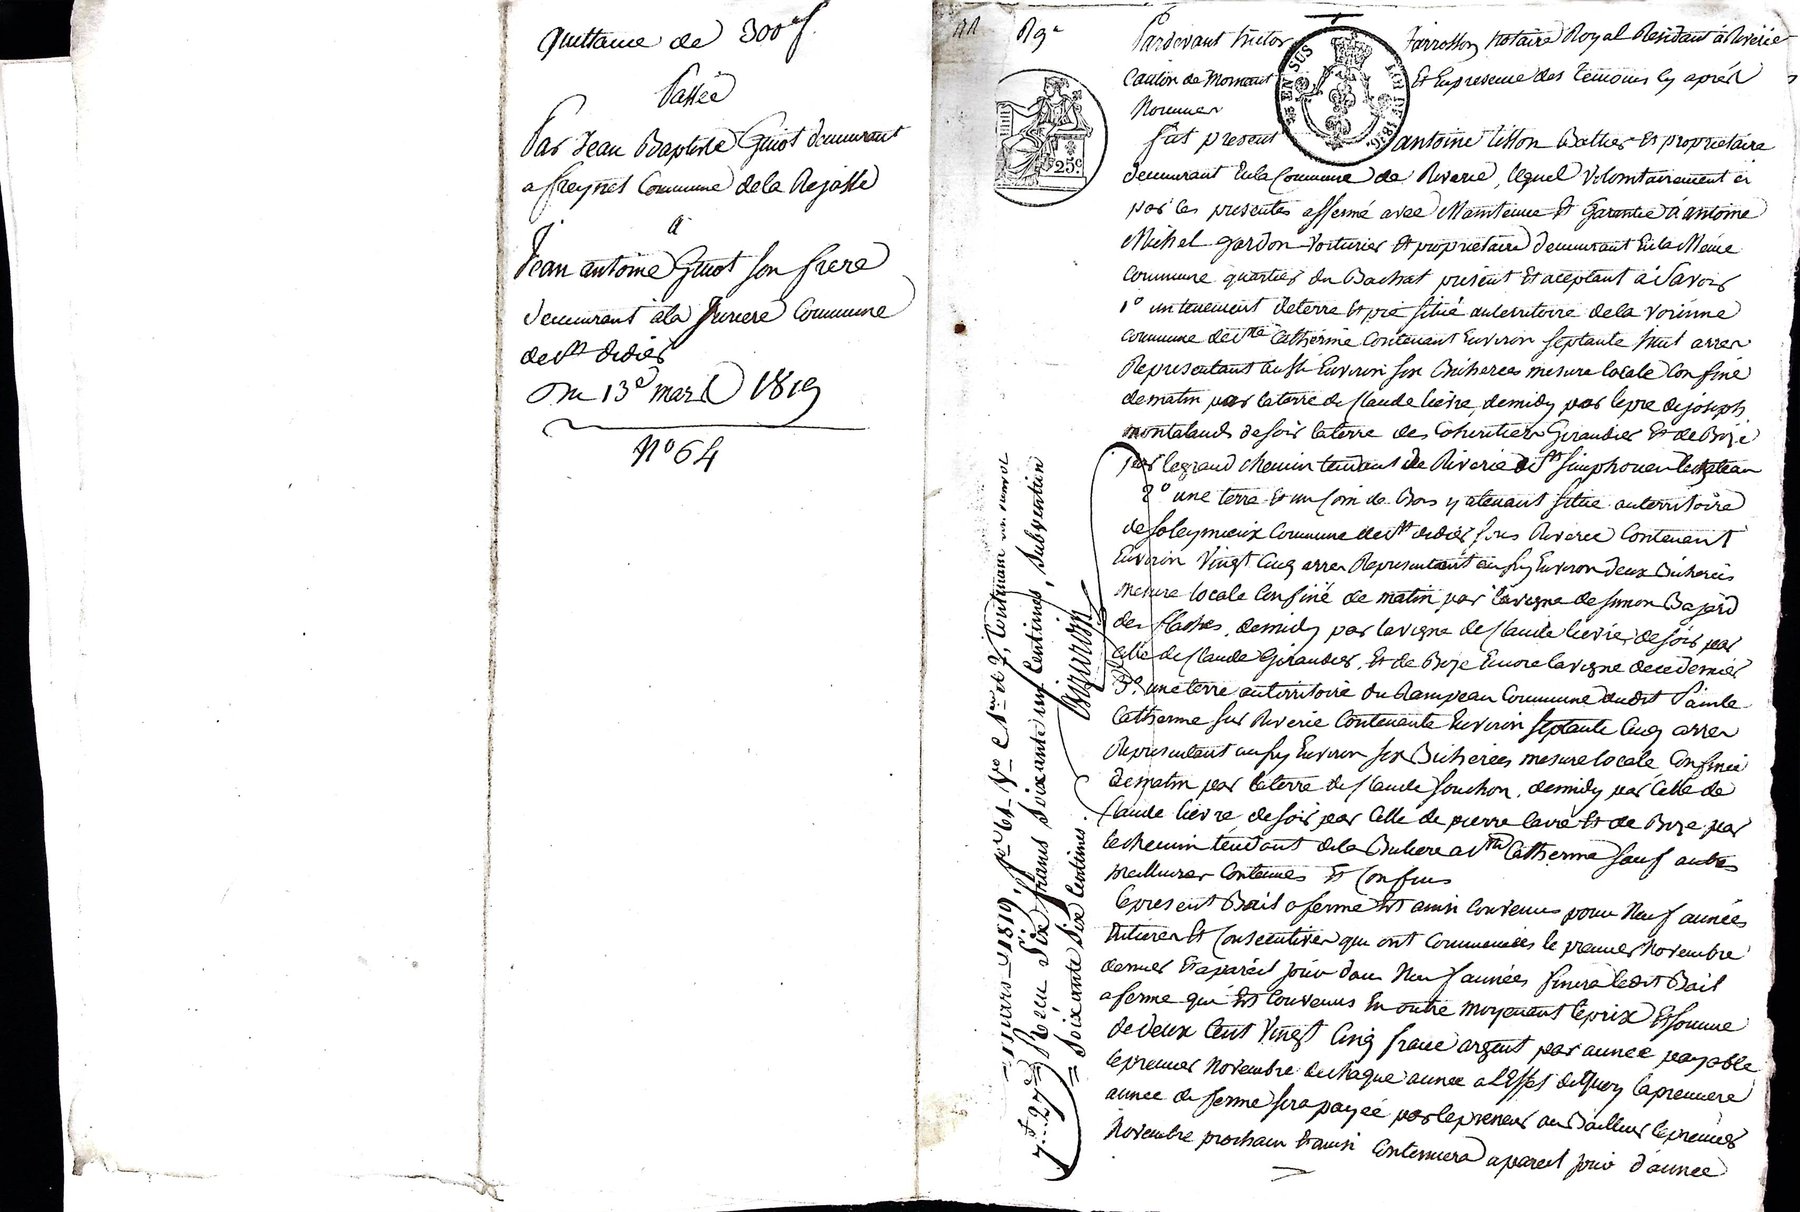 quittance de 300 f.
Passée
Par Jean Baptiste Guiot demeurant
a freynet Commune de la Rajasse
a
Jean antoine Guiot son frere
demeurant à la Commune
de st didier
Du 13e mars 1819
No 64
Rge
Pardevant hictor farrosson Notaire Royal Résidant à Riverie
Canton de Mornant Et En presence des temoins cy aprés
Nommes
fut present antoine Cotier Et proprietaire
demeurant En la Commune de Riverie, lequel volontairement a
par les presentes affermé avec Maintenue Et Garentie à antoine
Michel gardon Voiturier Et proprietaire demeurant En la Même
commune quartier du Bachat present Et aceptant à Savoir
1o un tenement de terre Et pré situé au territoire de la
commune de ste Catherine Contenant Environ septante huit arres
Representant aussi Environ six Bicherees mesure locale Confiné
de matin par la terre de Claude lievre, de midy par le pre de joseph
de soir la terre des Cohéritiers Giraudier Et de Bize
par le grand chemin tendant de Riverie a st simphorien le chateau
2o une terre Et un Coin de Bois y atenant situé au territoire
de soleymieux Commune de st didier sous Riverie Contenant
Environ Vingt Cinq arres Representant aussy Environ deux Bicherees
mesure locale Confiné de matin par la vigne de simon Bajard
des flaches, de midy par la vigne de Claude lievre, de soir par
celle de Claude Giraudier, Et de Bize Encore la vigne de ce dernier
3o une terre au territoire du Rampeau Commune dudit Sainte
Catherine sur Riverie Contenante Environ septante Cinq arres
Representant aussy Environ six Bicherées mesure locale Confinée
de matin par la terre de Claude souchon, de midy par Celle de
Claude lievre, de soir par Celle de pierre Et de Bize par
le chemin tendant de la a ste Catherine sauf autres
meilleures Contenues Et Confins
le present Bail a ferme Est ainsi Convenus pour Neuf années
Entieres Et Consecutives qui ont Commencées le premier Novembre
dernier Et a pareil jour dans Neuf années finira ledit Bail
a ferme qui Est Convenus En outre moyenant le prix Et somme
de deux Cent Vingt Cinq franc argent par année payable
le premier Novembre de chaque année a l'Effet de quoy la premiere
année de ferme sera payée par le preneur au Bailleur le premier
Novembre prochain Et ainsi Continuera a pareil jour d'année
EN SUS
LOI DE 1816.
25c.
mars 1819, fo 61 Vo Cses et 7, Contenant un renvoi
Recu Six francs Soixante un Centimes, Subvention
= Soixante Six Centimes.
7.f 27c